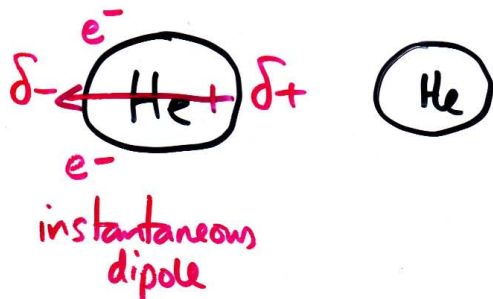 e-
δ- He δ+ He
e-
instantaneous
dipole